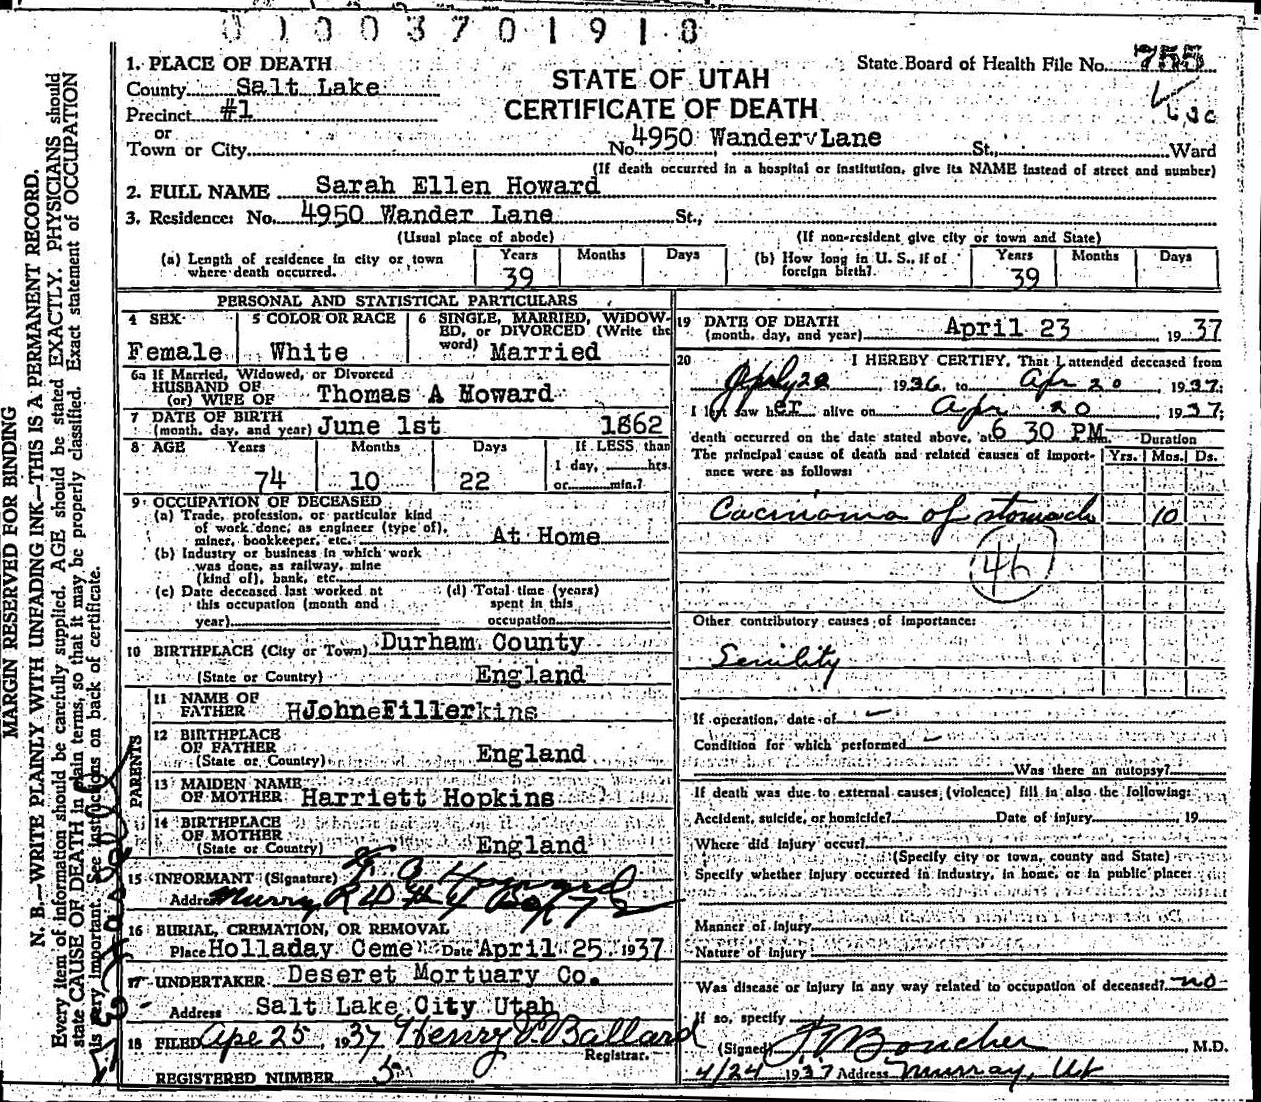 0 1 0 0 3 7 0 1 9 1 8
1. PLACE OF DEATH
State Board of Health File No. 755
County Salt Lake
STATE OF UTAH
Precinct #1
CERTIFICATE OF DEATH
or
Town or City No. 4950 Wander Lane St., Ward
(If death occurred in a hospital or institution, give its NAME instead of street and number)
2. FULL NAME Sarah Ellen Howard
3. Residence: No. 4950 Wander Lane St.,
(Usual place of abode) (If non-resident give city or town and State)
(a) Length of residence in city or town where death occurred. Years 39 Months Days
(b) How long in U. S., if of foreign birth? Years 39 Months Days
PERSONAL AND STATISTICAL PARTICULARS
4 SEX Female
5 COLOR OR RACE White
6 SINGLE, MARRIED, WIDOWED, or DIVORCED (Write the word) Married
6a If Married, Widowed, or Divorced
HUSBAND OF
(or) WIFE OF Thomas A Howard
7 DATE OF BIRTH
(month, day, and year) June 1st 1862
8 AGE Years Months Days If LESS than
1 day, hrs.
74 10 22 or min.?
9 OCCUPATION OF DECEASED
(a) Trade, profession, or particular kind
of work done, as engineer (type of),
miner, bookkeeper, etc. At Home
(b) Industry or business in which work
was done, as railway, mine
(kind of), bank, etc.
(c) Date deceased last worked at
this occupation (month and
year)
(d) Total time (years)
spent in this
occupation
10 BIRTHPLACE (City or Town) Durham County
(State or Country) England
PARENTS
11 NAME OF
FATHER John Filler
12 BIRTHPLACE
OF FATHER
(State or Country) England
13 MAIDEN NAME
OF MOTHER Harriett Hopkins
14 BIRTHPLACE
OF MOTHER
(State or Country) England
15 INFORMANT (Signature) Howard
Address Murry
16 BURIAL, CREMATION, OR REMOVAL
Place Holladay Ceme Date April 25 1937
17 UNDERTAKER Deseret Mortuary Co.
Address Salt Lake City Utah
18 FILED Apr 25, 1937 Henry Ballard
Registrar.
REGISTERED NUMBER 5
19 DATE OF DEATH
(month, day, and year) April 23 1937
20 I HEREBY CERTIFY, That I attended deceased from
1936, to Apr 20, 1937;
I last saw her alive on Apr 20, 1937;
death occurred on the date stated above, at 6 30 PM.
The principal cause of death and related causes of importance were as follows:
Duration
Yrs. Mos. Ds.
Cacinoma of stomach 10
46
Other contributory causes of importance:
Senility
If operation, date of
Condition for which performed
Was there an autopsy?
If death was due to external causes (violence) fill in also the following:
Accident, suicide, or homicide? Date of injury, 19
Where did injury occur?
(Specify city or town, county and State)
Specify whether injury occurred in industry, in home, or in public place:
Manner of injury
Nature of injury
Was disease or injury in any way related to occupation of deceased? no
If so, specify
(Signed) Boucher M.D.
4/24 1937 Address Murray, Ut
MARGIN RESERVED FOR BINDING
N. B.—WRITE PLAINLY WITH UNFADING INK—THIS IS A PERMANENT RECORD.
Every item of information should be carefully supplied. AGE should be stated EXACTLY. PHYSICIANS should
state CAUSE OF DEATH in plain terms, so that it may be properly classified. Exact statement of OCCUPATION
is very important. See instructions on back of certificate.